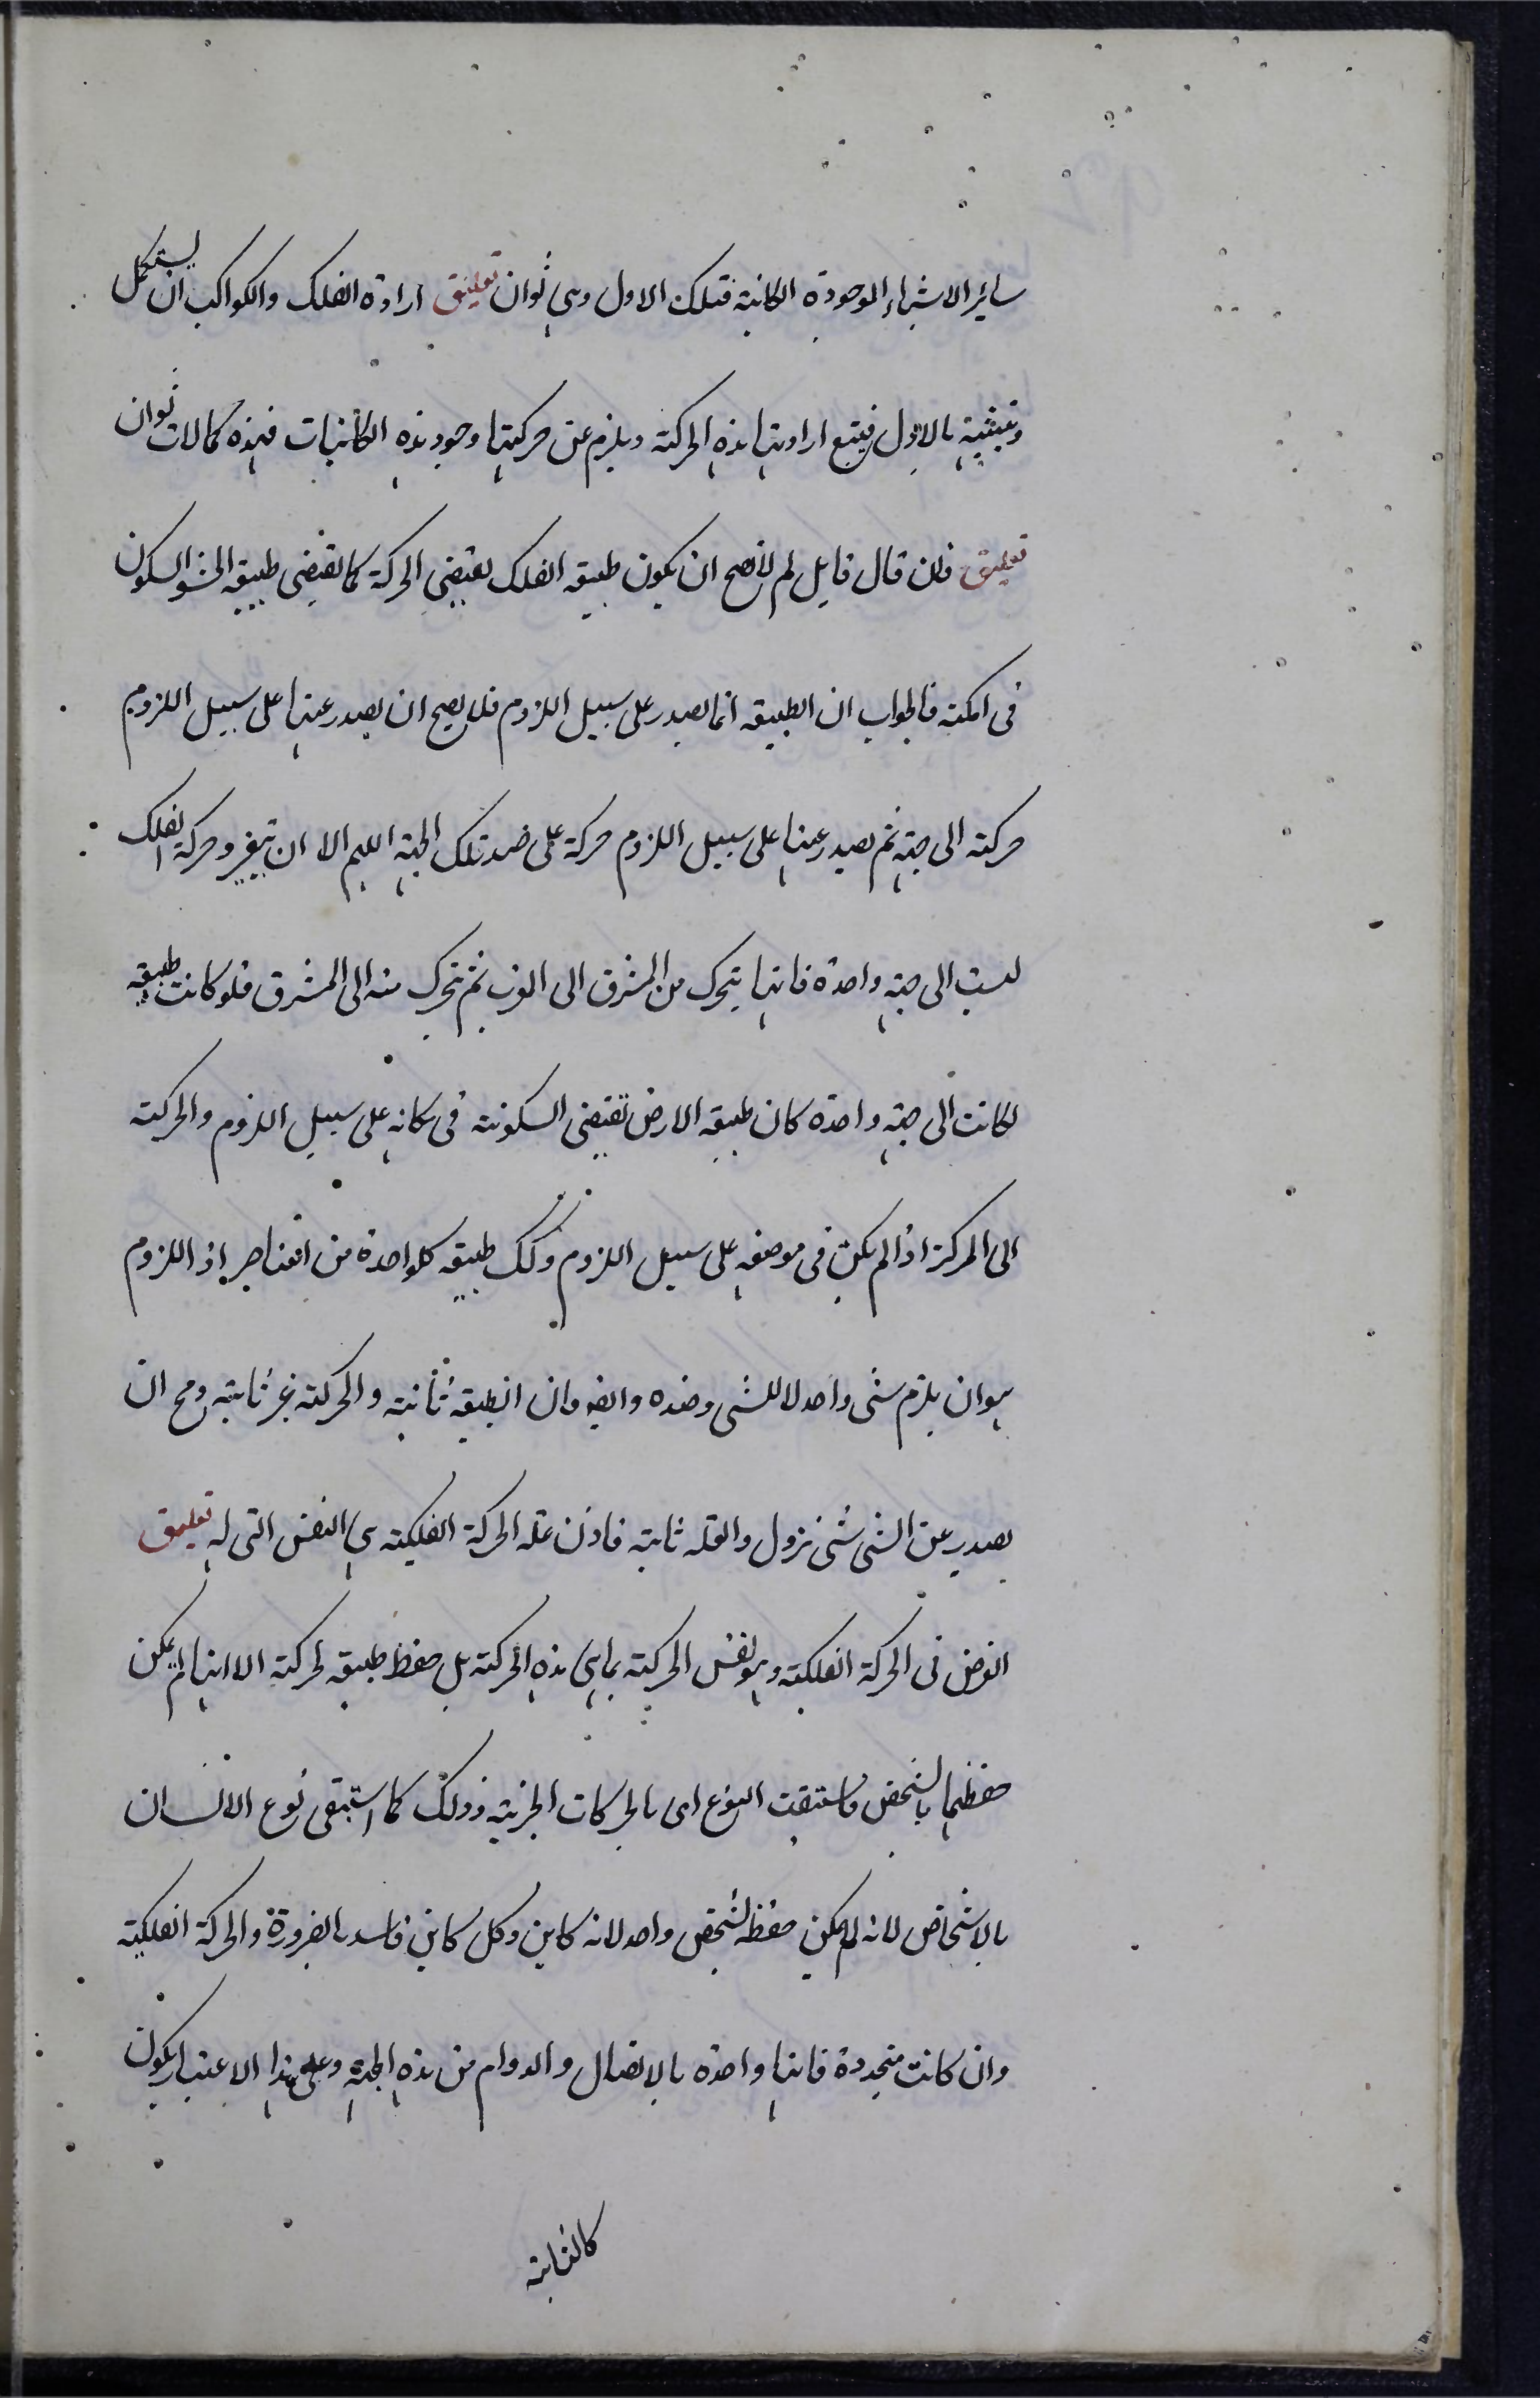 سائر الاشياء الموجودة الكائنة فتلك الاول وهي ثوان تعليق ارادة الفلك والكواكب ان يستكمل
وتتشبه بالاول فيتبع ارادتها هذه الحركة ويلزم عن حركتها وجود هذه الكائنات فهذه كمالات ثوان
تعليق فان قال قايل لم لا يصح ان يكون طبيعة الفلك يقتضى الحركة كما يقتضى طبيعة السكون
فى امكنه فالجواب ان الطبيعة انما يصدر على سبيل اللزوم فلا يصح ان يصدر عنها على سبيل اللزوم
حركة الى جهة ثم يصدر عنها على سبيل اللزوم حركة على ضد تلك الجهة اللهم الا ان تتغير وحركة الفلك
ليست الى جهة واحدة فانها يتحرك من المشرق الى المغرب ثم تتحرك منه الى المشرق فلو كانت طبيعة
لكانت الى جهة واحدة كان طبيعة الارض تقتضى السكونة فى مكانه على سبيل اللزوم والحركة
الى المركز اذا لم يكن فى موضعه على سبيل اللزوم وكك طبيعة كل واحدة من العناصر اذ اللزوم
هو ان يلزم شى واحد لا للشى وضده وايضه وان الطبيعة ثابتة والحركة غير ثابتة ومح ان
يصدر عن الشى شى يزول والعلة ثابتة فاذن علة الحركة الفلكية هي النفس التى له تعليق
الغرض فى الحركة الفلكية وهو نفس الحركة بما هى هذه الحركة بل حفظ طبيعة الحركة الا انها لم يمكن
حفظها بالشخص فاستبقت النوع اى بالحركات الجزئية وذلك كما استبقى نوع الانسان
بالاشخاص لانه لم يمكن حفظه بشخص واحد لانه كاين وكل كاين فاسد بالضرورة والحركة الفلكية
وان كانت متجددة فانها واحدة بالاتصال والدوام من هذه الجهة وعلى هذا الاعتبار يكون
كالثابتة